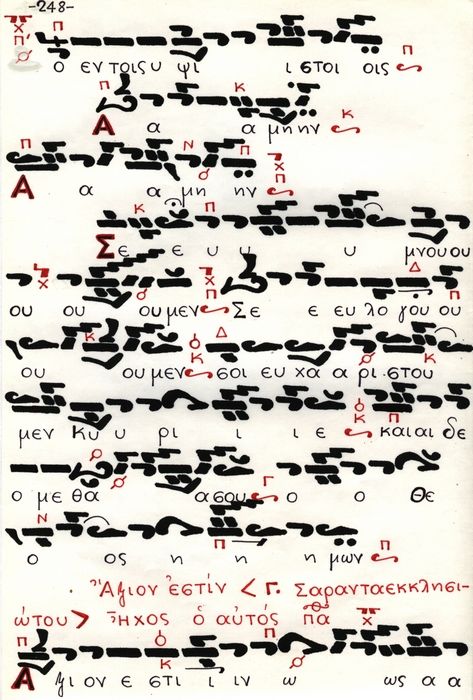 -248-
ο εν τοις υ ψι ι στοι οις
Α α α μη ην
Α α α μη ην
Σε ε ευ υ υ μνου ου
ου ου ου μεν Σε ε ευ λο γου ου
ου ου μεν σοι ευ χα α ρι στου
μεν Κυ υ ρι ι ι ε και αι δε
ο με θα α σου ο ο Θε
ο ος η η η μων
Ἄξιον ἐστίν < Γ. Σαρανταεκκλησι-
ώτου > Ἦχος ὁ αὐτός πα
Α ξι ον ε στι ι ιν ω ως α α